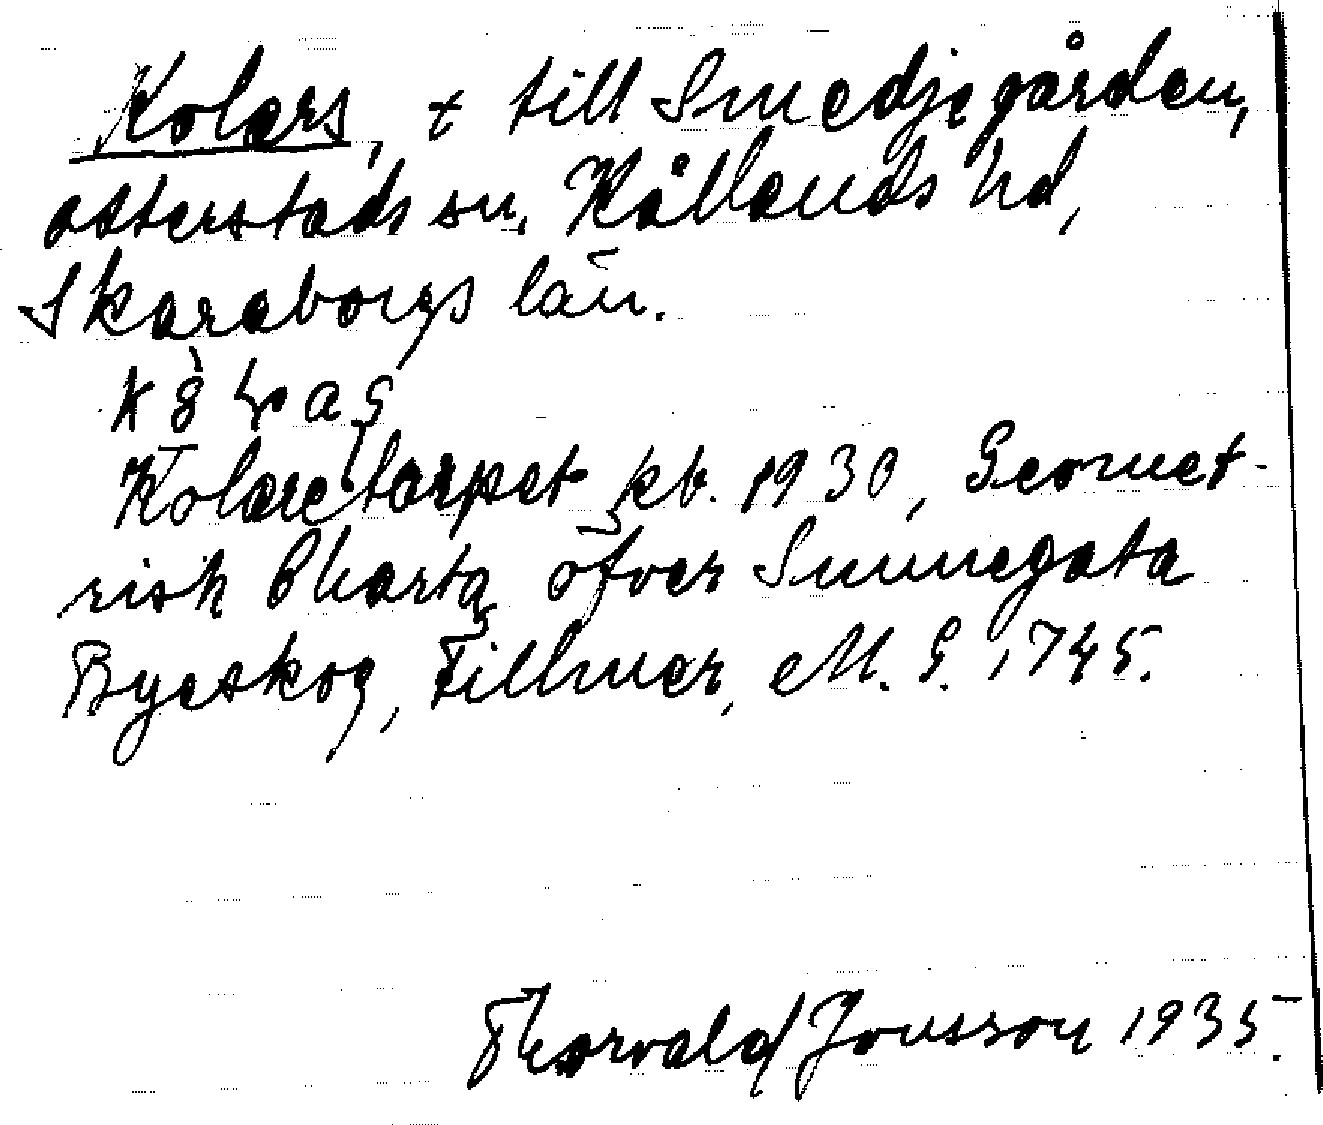 Kolars, + till Smedjegården,
Otterstads sn, Kållands hd,
Skaraborgs län.
Kolaretorpet kb. 1930, Geomet-
risk Charta öfver Sunnegata
Byeskog, Fillmer, M. G. 1745.
Thorvald Jonsson 1935.